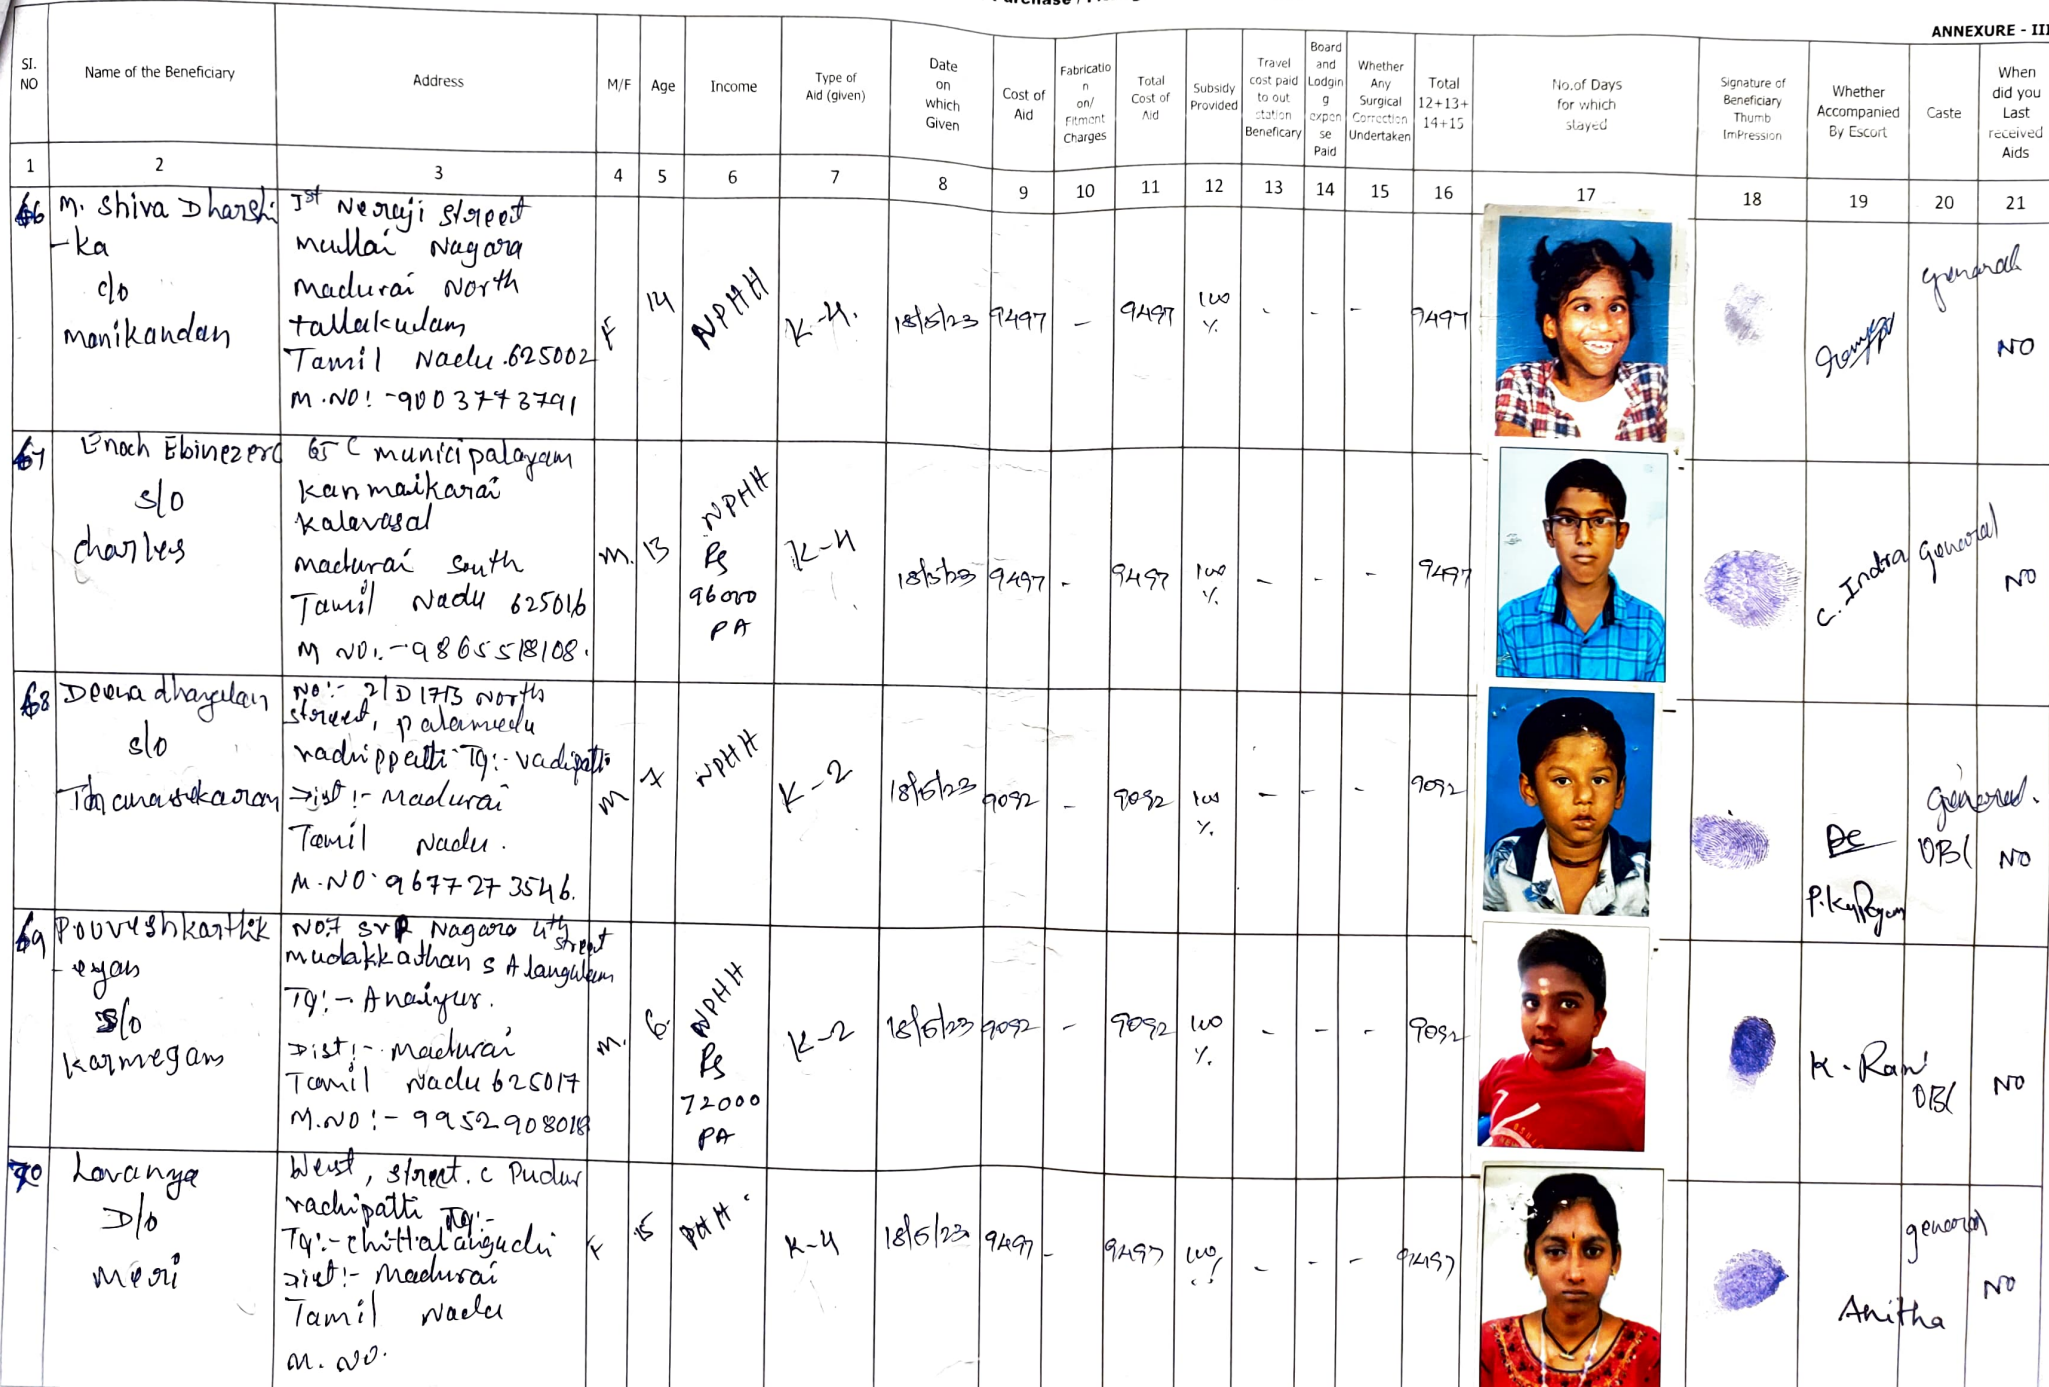 ANNEXURE - III
SI. NO
Name of the Beneficiary
Address
M/F
Age
Income
Type of Aid (given)
Date on which Given
Cost of Aid
Fabricatio n on/ Fitment Charges
Total Cost of Aid
Subsidy Provided
Travel cost paid to out station Beneficary
Board and Lodgin g expen se Paid
Whether Any Surgical Correction Undertaken
Total 12+13+ 14+15
No.of Days for which stayed
Signature of Beneficiary Thumb ImPression
Whether Accompanied By Escort
Caste
When did you Last received Aids
1 2 3 4 5 6 7 8 9 10 11 12 13 14 15 16 17 18 19 20 21
66
M. Shiva Dharshi
-ka
c/o
manikandan
Ist Neraji street
mullai Nagara
madurai North
tallakulam
Tamil Nadu .625002
M.NO:-9003773791
F
14
NPHH
K-4.
18/5/23
9497
-
9497
100 %
- - -
9497
genaral
NO
67
Enoch Ebinezer
s/o
charles
65 C municipalayam
kanmaikarai
kalavasal
madurai south
Tamil Nadu 625016
M NO:-9865518108.
M.
13
NPHH
Rs
96000
PA
K-4
18/5/23
9497
-
9497
100 %
- - -
9497
C. Indra
general
NO
68
Deenadhayalan
s/o
NO:- 2/D 17B North
street, palamedu
vadippatti Tq:- vadipatti
Dist:- Madurai
Tamil Nadu.
M.NO: 9677273546.
M
7
NPHH
K-2
18/5/23
9092
-
9092
100 %
- - -
9092
general.
OBC
NO
69
Pouveshkarthik
-eyan
s/o
karmegam
NO7 SVP Nagara 4th street
mudakkathan s Alangulam
Tq:- Anaiyur.
Dist:- Madurai
Tamil Nadu 625017
M.NO:- 9952908018
M.
6
NPHH
Rs
72000
PA
K-2
18/5/23
9092
-
9092
100 %
- - -
9092
K. Rani
OBC
NO
70
Lavanya
D/o
Meri
West, street. C Pudur
vadipatti Tq:-
Tq:- chittalangudi
Dist:- Madurai
Tamil Nadu
M. NO.
F
15
PHH
K-4
18/5/23
9497
-
9497
100
- - -
9497
Anitha
general
NO